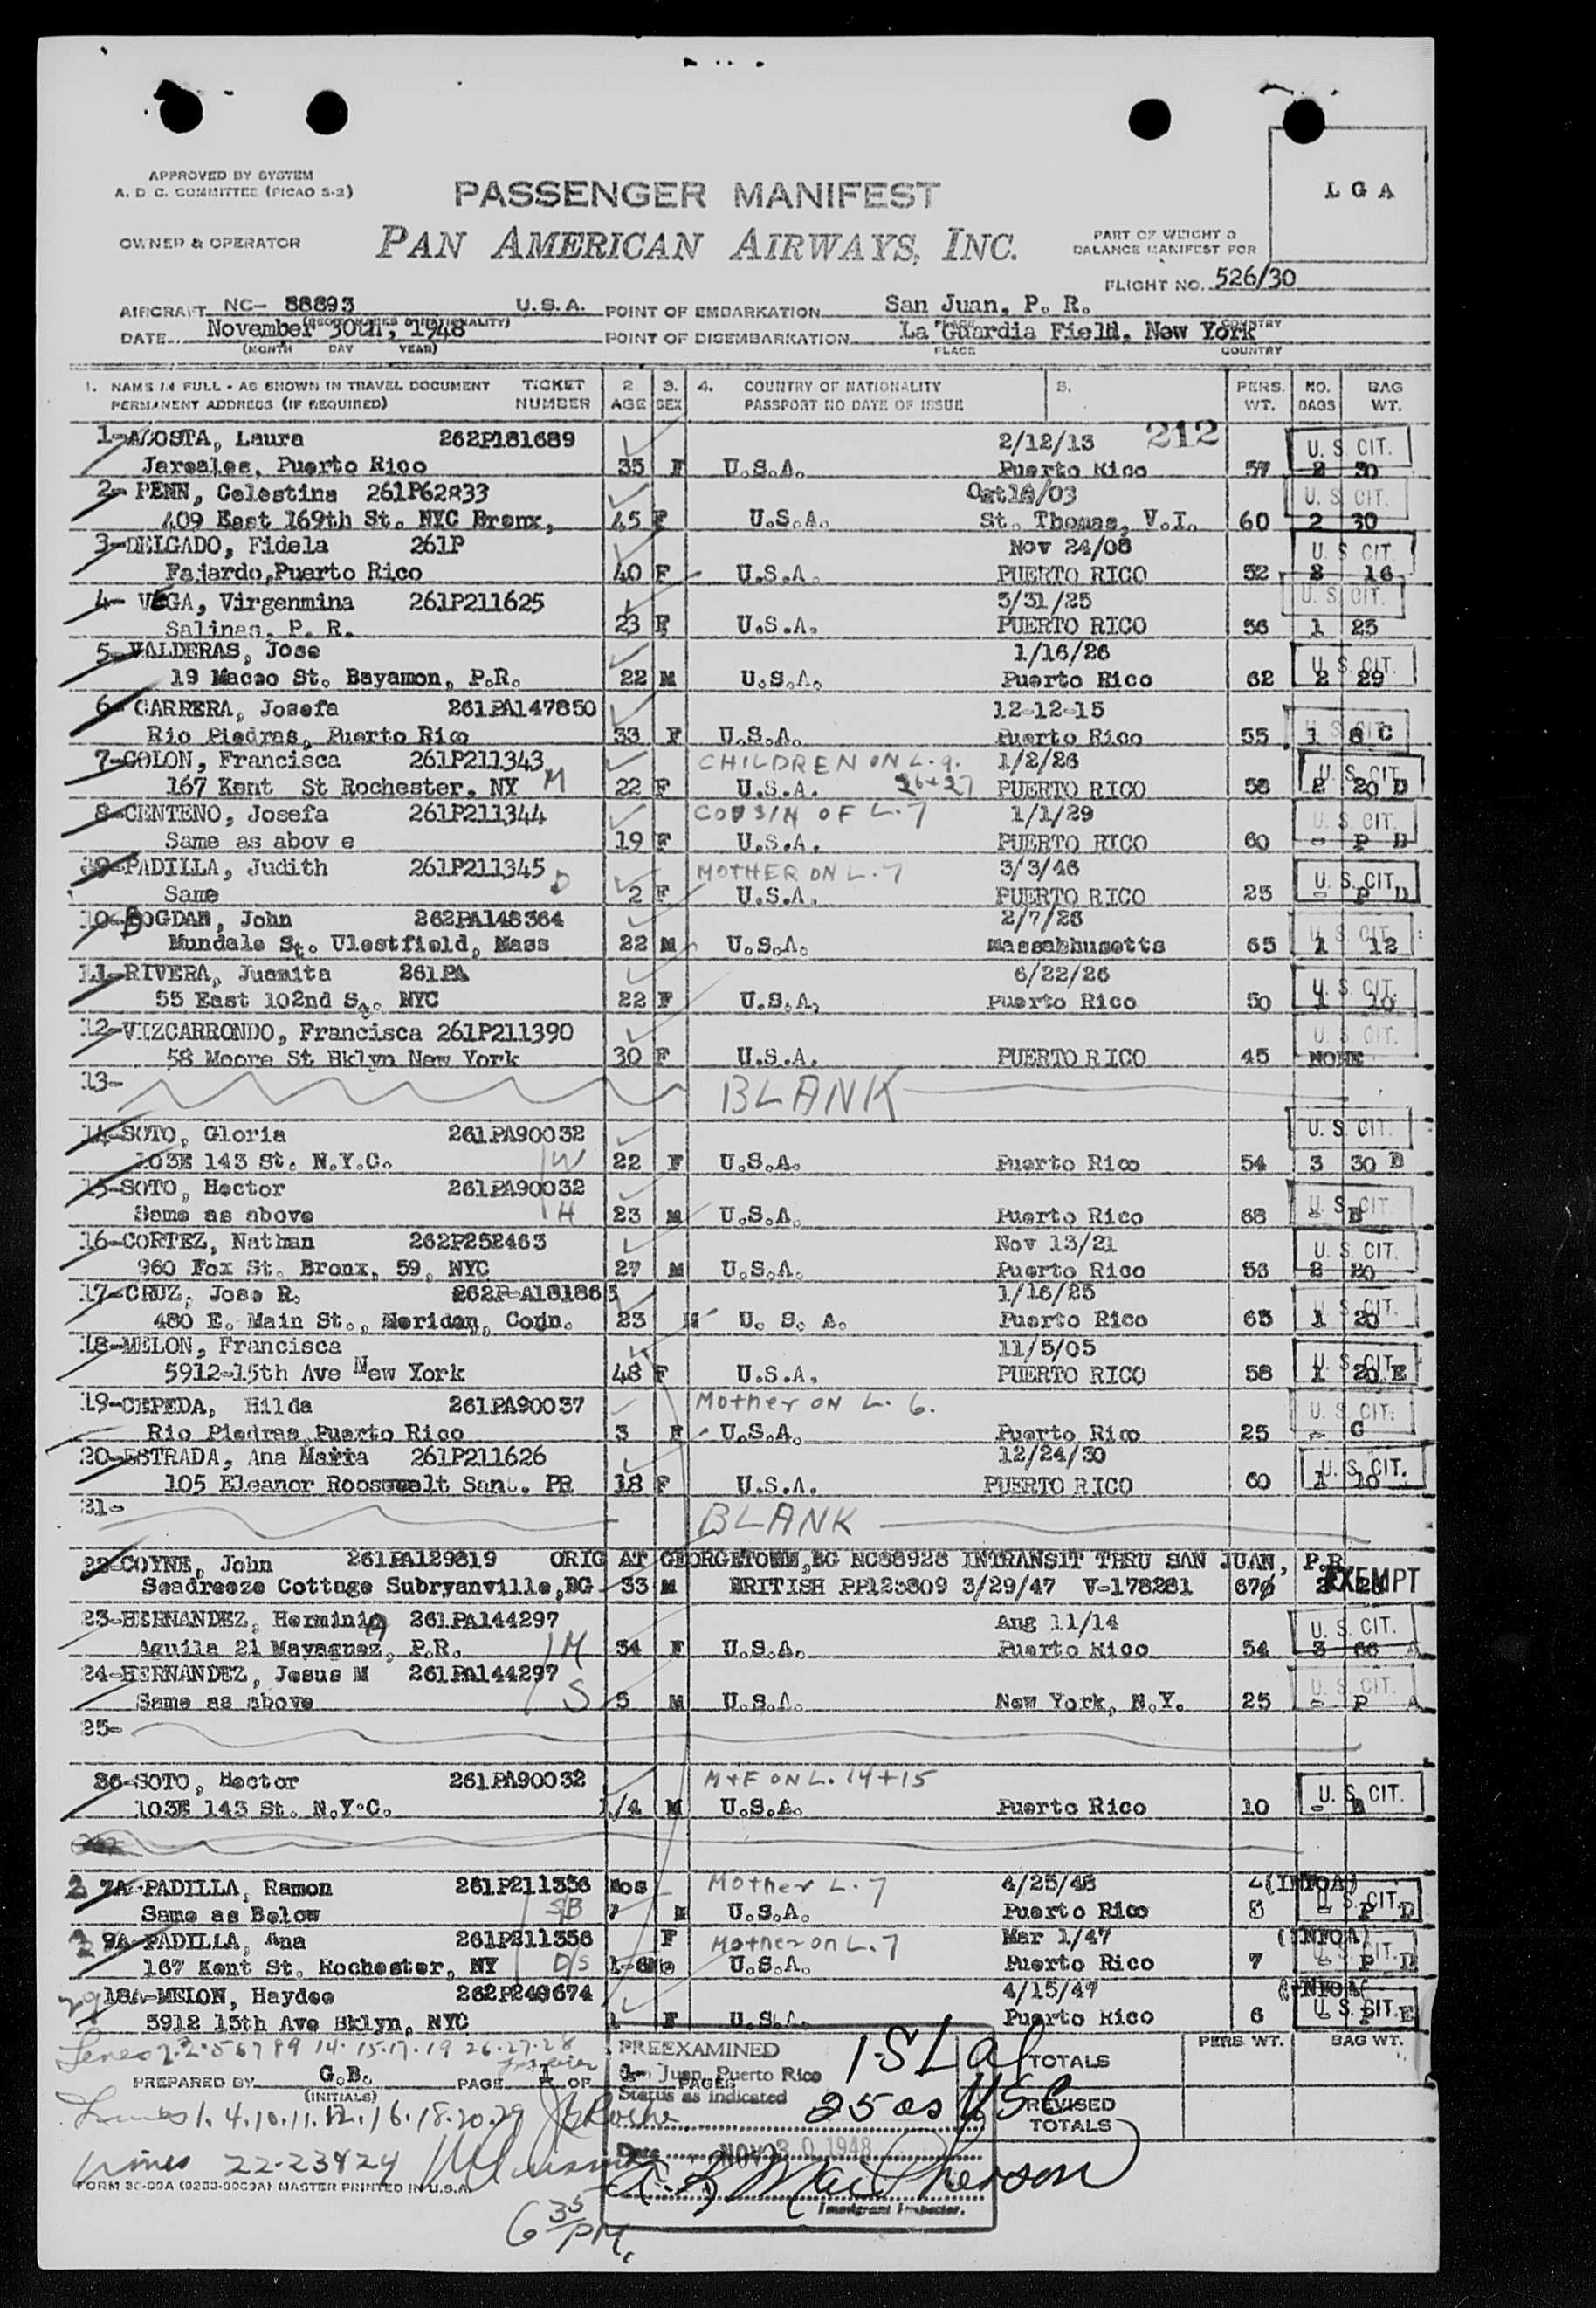 APPROVED BY SYSTEM
A. D. C. COMMITTEE (PICAO S-2)
PASSENGER MANIFEST
LGA
OWNER & OPERATOR
PAN AMERICAN AIRWAYS, INC.
PART OF WEIGHT &
BALANCE MANIFEST FOR
FLIGHT NO. 526/30
AIRCRAFT NC- 88893 U.S.A. POINT OF EMBARKATION San Juan, P. R.
DATE November 30th, 1948 POINT OF DISEMBARKATION La Guardia Field, New York
(MONTH DAY YEAR) PLACE COUNTRY
1. NAME IN FULL - AS SHOWN IN TRAVEL DOCUMENT TICKET 2. 3. 4. COUNTRY OF NATIONALITY 5. PERS. NO. BAG
PERMANENT ADDRESS (IF REQUIRED) NUMBER AGE SEX PASSPORT NO DATE OF ISSUE WT. BAGS WT.
1-ACOSTA, Laura 262P181689 2/12/13 212 U. S. CIT.
Jareales, Puerto Rico 35 F U.S.A. Puerto Rico 57 2 30
2- PENN, Celestina 261P62833 Oct18/03 U. S. CIT.
409 East 169th St. NYC Bronx, 45 F U.S.A. St. Thomas, V.I. 60 2 30
3-DELGADO, Fidela 261P Nov 24/08 U. S. CIT.
Fajardo,Puerto Rico 40 F U.S.A. PUERTO RICO 52 2 16
4- VEGA, Virgenmina 261P211625 3/31/25 U. S. CIT.
Salinas, P. R. 23 F U.S.A. PUERTO RICO 56 1 25
5-VALDERAS, Jose 1/16/26 U. S. CIT.
19 Maceo St. Bayamon, P.R. 22 M U.S.A. Puerto Rico 62 2 29
6- CARRERA, Josefa 261PA147850 12-12-15 U. S. CIT.
Rio Piedras, Puerto Rico 33 F U.S.A. Puerto Rico 55 1 8 C
7-COLON, Francisca 261P211343 CHILDREN ON L. 9. 1/2/26 U. S. CIT.
167 Kent St Rochester, NY M 22 F U.S.A. 26+27 PUERTO RICO 58 2 20 D
8-CENTENO, Josefa 261P211344 COUSIN OF L. 7 1/1/29 U. S. CIT.
Same as abov e 19 F U.S.A. PUERTO RICO 60 - P D
9-PADILLA, Judith 261P211345 MOTHER ON L. 7 3/3/46 U. S. CIT.
Same D 2 F U.S.A. PUERTO RICO 25 - P D
10-BOGDAN, John 262PA148364 2/7/26 U. S. CIT.
Mundale St. Ulestfield, Mass 22 M U.S.A. Massabhusetts 65 1 12
11-RIVERA, Juamita 261PA 6/22/26 U. S. CIT.
55 East 102nd St. NYC 22 F U.S.A. Puerto Rico 50 1 10
12-VIZCARRONDO, Francisca 261P211390 U. S. CIT.
58 Moore St Bklyn New York 30 F U.S.A. PUERTO RICO 45 NONE
13- BLANK
14-SOTO, Gloria 261PA90032 U. S. CIT.
103E 143 St. N.Y.C. W 22 F U.S.A. Puerto Rico 54 3 30 B
15-SOTO, Hector 261PA90032 U. S. CIT.
Same as above H 23 M U.S.A. Puerto Rico 68 - B
16-CORTEZ, Nathan 262P252463 Nov 13/21 U. S. CIT.
960 Fox St. Bronx, 59, NYC 27 M U.S.A. Puerto Rico 56 2 20
17-CRUZ, Jose R. 262P-A181863 1/16/25 U. S. CIT.
480 E. Main St., Meriden, Conn. 23 M U. S. A. Puerto Rico 65 1 20
18-MELON, Francisca 11/5/05 U. S. CIT.
5912-15th Ave New York 48 F U.S.A. PUERTO RICO 58 1 20 E
19-CEPEDA, Hilda 261PA90037 Mother ON L. 6. U. S. CIT.
Rio Piedras Puerto Rico 3 F U.S.A. Puerto Rico 25 - C
20-ESTRADA, Ana Maria 261P211626 12/24/30 U. S. CIT.
105 Eleanor Roosevelt Sant. PR 18 F U.S.A. PUERTO RICO 60 1 10
21- BLANK
22-COYNE, John 261PA129819 ORIG AT GEORGETOWN,BG NC88928 INTRANSIT THRU SAN JUAN, P.R.
Seadreeze Cottage Subryanville,BG 33 M BRITISH PP125809 3/29/47 V-178281 67 2 EXEMPT
23-HERNANDEZ, Herminia 261PA144297 Aug 11/14 U. S. CIT.
Aguila 21 Mayaguez, P.R. M 34 F U.S.A. Puerto Rico 54 3 66 A
24-HERNANDEZ, Jesus M 261PA144297 U. S. CIT.
Same as above S 5 M U.S.A. New York, N.Y. 25 - P A
25-
26-SOTO, Hector 261PA90032 M+F ON L. 14+15 U. S. CIT.
103E 143 St. N.Y.C. 1/4 M U.S.A. Puerto Rico 10 - B
7A-PADILLA, Ramon 261P211356 Mos Mother L. 7 4/25/48 (INFOA)
Same as Below 7 M U.S.A. Puerto Rico 8 - P D U. S. CIT.
9A-PADILLA, Ana 261P211356 F Mother on L. 7 Mar 1/47 (INFOA)
167 Kent St. Rochester, NY 1-6Mo U.S.A. Puerto Rico 7 - P D
29 18A-MELON, Haydee 262P249674 4/15/47 (INFOA)
5912 15th Ave Bklyn, NYC 1 F U.S.A. Puerto Rico 6 U. S. CIT. E
PREEXAMINED 1-SL TOTALS PERS WT. BAG WT.
PREPARED BY G.B. PAGE 1 OF PAGES
San Juan, Puerto Rico
(INITIALS)
Status as indicated 25 as USC REVISED
TOTALS
Lines 1. 4. 10. 11. 12. 16. 18. 20. 29
Date NOV 30 1948
Lines 22-23&24
FORM 36-89A MASTER PRINTED IN U.S.A.
Immigrant Inspector.
6 35 PM.